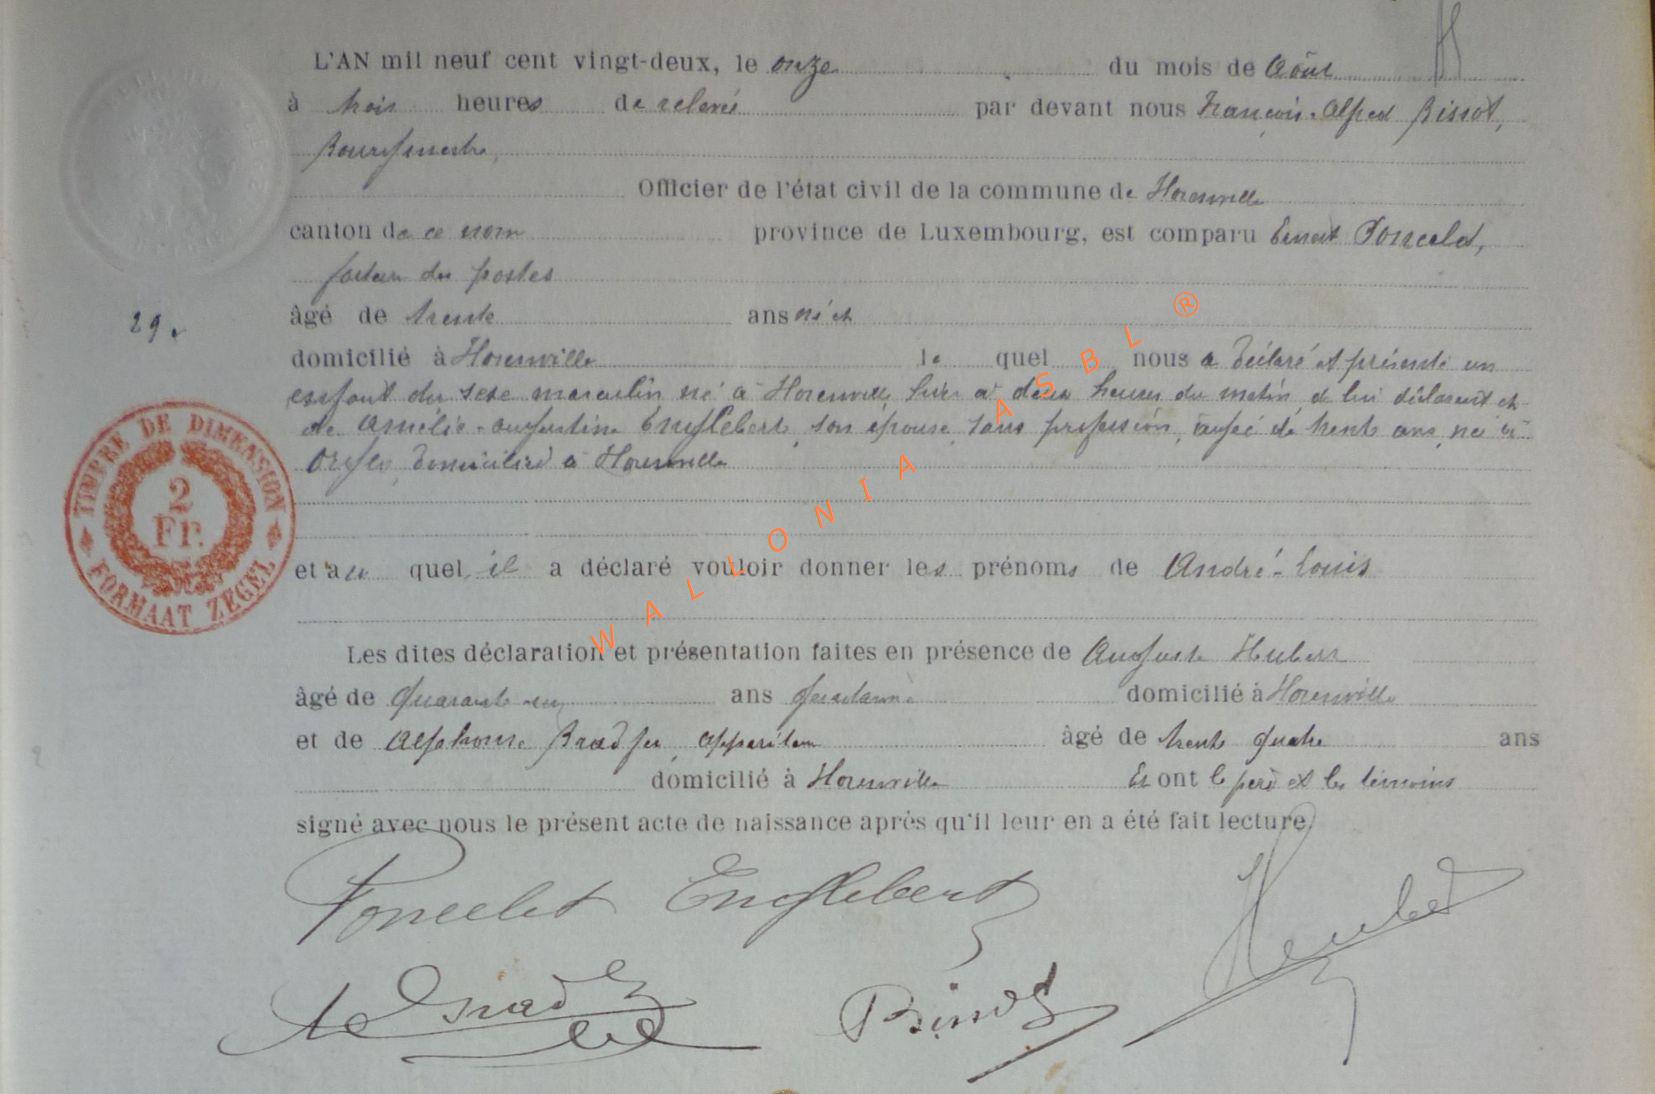 L'AN mil neuf cent vingt-deux, le onze du mois de Août
à trois heures de relevée par devant nous François-Alfred Bissot,
Bourgmestre,
Officier de l'état civil de la commune de Florenville
canton de ce nom province de Luxembourg, est comparu Benoit Poncelet,
facteur des postes
29.
âgé de trente ans né et
domicilié à Florenville le quel nous a déclaré et présenté un
enfant du sexe masculin né à Florenville hier à deux heures du matin de lui déclarant et
de Amélie-Augustine Englebert, son épouse, sans profession, âgée de trente ans, née à
domiciliée à Florenville
TIMBRE DE DIMENSION
2
Fr.
FORMAAT ZEGEL
et au quel, il a déclaré vouloir donner les prénoms de André-Louis
WALLONIA ASBL ®
Les dites déclaration et présentation faites en présence de Auguste Hubert
âgé de quarante-un ans gendarme domicilié à Florenville
et de Alphonse Bradfer, appariteur âgé de trente quatre ans
domicilié à Florenville Et ont le père et les témoins
signé avec nous le présent acte de naissance après qu'il leur en a été fait lecture.
Poncelet Englebert Hubert
Bissot